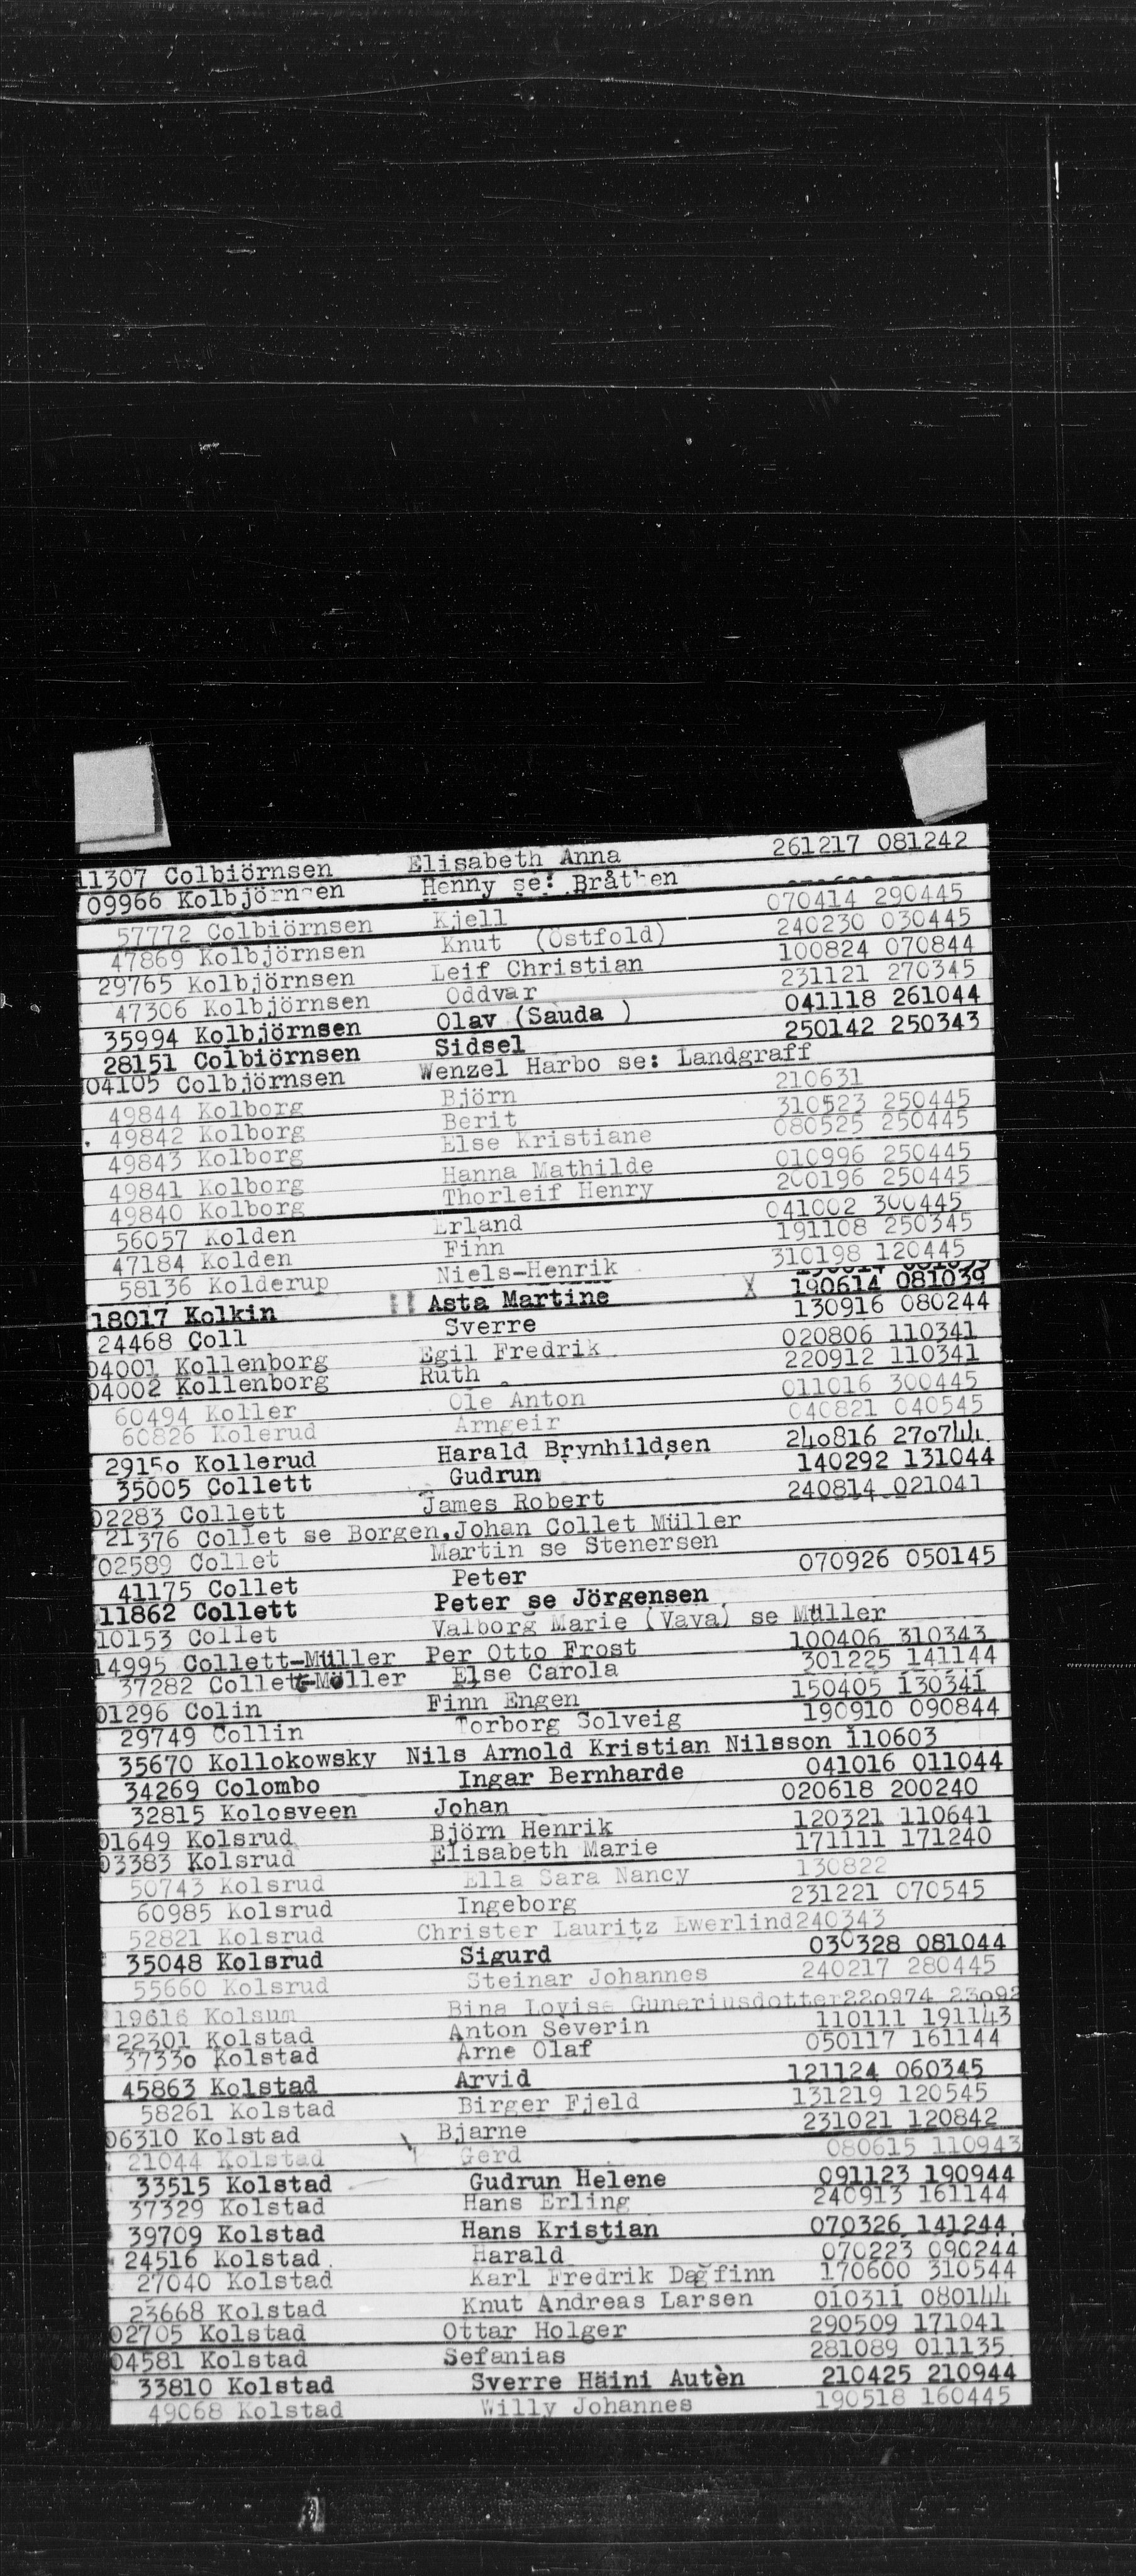 11307 Colbiörnsen Elisabeth Anna 261217 081242
09966 Kolbjörnsen Henny se: Bråthen
57772 Colbiörnsen Kjell 070414 290445
47869 Kolbjörnsen Knut (Östfold) 240230 030445
29765 Kolbjörnsen Leif Christian 100824 070844
47306 Kolbjörnsen Oddvar 231121 270345
35994 Kolbjörnsen Olav (Sauda ) 041118 261044
28151 Colbiörnsen Sidsel 250142 250343
04105 Colbjörnsen Wenzel Harbo se: Landgraff
49844 Kolborg Björn 210631
49842 Kolborg Berit 310523 250445
49843 Kolborg Else Kristiane 080525 250445
49841 Kolborg Hanna Mathilde 010996 250445
49840 Kolborg Thorleif Henry 200196 250445
56057 Kolden Erland 041002 300445
47184 Kolden Finn 191108 250345
58136 Kolderup Niels-Henrik 310198 120445
18017 Kolkin Asta Martine X 190614 081039
24468 Coll Sverre 130916 080244
04001 Kollenborg Egil Fredrik 020806 110341
04002 Kollenborg Ruth 220912 110341
60494 Koller Ole Anton 011016 300445
60826 Kolerud Arngeir 040821 040545
29150 Kollerud Harald Brynhildsen 240816 270744
35005 Collett Gudrun 140292 131044
02283 Collett James Robert 240814 021041
21376 Collet se Borgen, Johan Collet Müller
02589 Collet Martin se Stenersen
41175 Collet Peter 070926 050145
11862 Collett Peter se Jörgensen
10153 Collet Valborg Marie (Vava) se Müller
14995 Collett-Müller Per Otto Frost 100406 310343
37282 Collett-Möller Else Carola 301225 141144
01296 Colin Finn Engen 150405 130341
29749 Collin Torborg Solveig 190910 090844
35670 Kollokowsky Nils Arnold Kristian Nilsson 110603
34269 Colombo Ingar Bernharde 041016 011044
32815 Kolosveen Johan 020618 200240
01649 Kolsrud Björn Henrik 120321 110641
03383 Kolsrud Elisabeth Marie 171111 171240
50743 Kolsrud Ella Sara Nancy 130822
60985 Kolsrud Ingeborg 231221 070545
52821 Kolsrud Christer Lauritz Ewerlind240343
35048 Kolsrud Sigurd 030328 081044
55660 Kolsrud Steinar Johannes 240217 280445
19616 Kolsum Bina Lovise Gunariusdotter220974 23092
22301 Kolstad Anton Severin 110111 191143
37330 Kolstad Arne Olaf 050117 161144
45863 Kolstad Arvid 121124 060345
58261 Kolstad Birger Fjeld 131219 120545
06310 Kolstad Bjarne 231021 120842
21044 Kolstad Gerd 080615 110943
33515 Kolstad Gudrun Helene 091123 190944
37329 Kolstad Hans Erling 240913 161144
39709 Kolstad Hans Kristian 070326 141244
24516 Kolstad Harald 070223 090244
27040 Kolstad Karl Fredrik Dagfinn 170600 310544
23668 Kolstad Knut Andreas Larsen 010311 080144
02705 Kolstad Ottar Holger 290509 171041
04581 Kolstad Sefanias 281089 011135
33810 Kolstad Sverre Häini Autèn 210425 210944
49068 Kolstad Willy Johannes 190518 160445